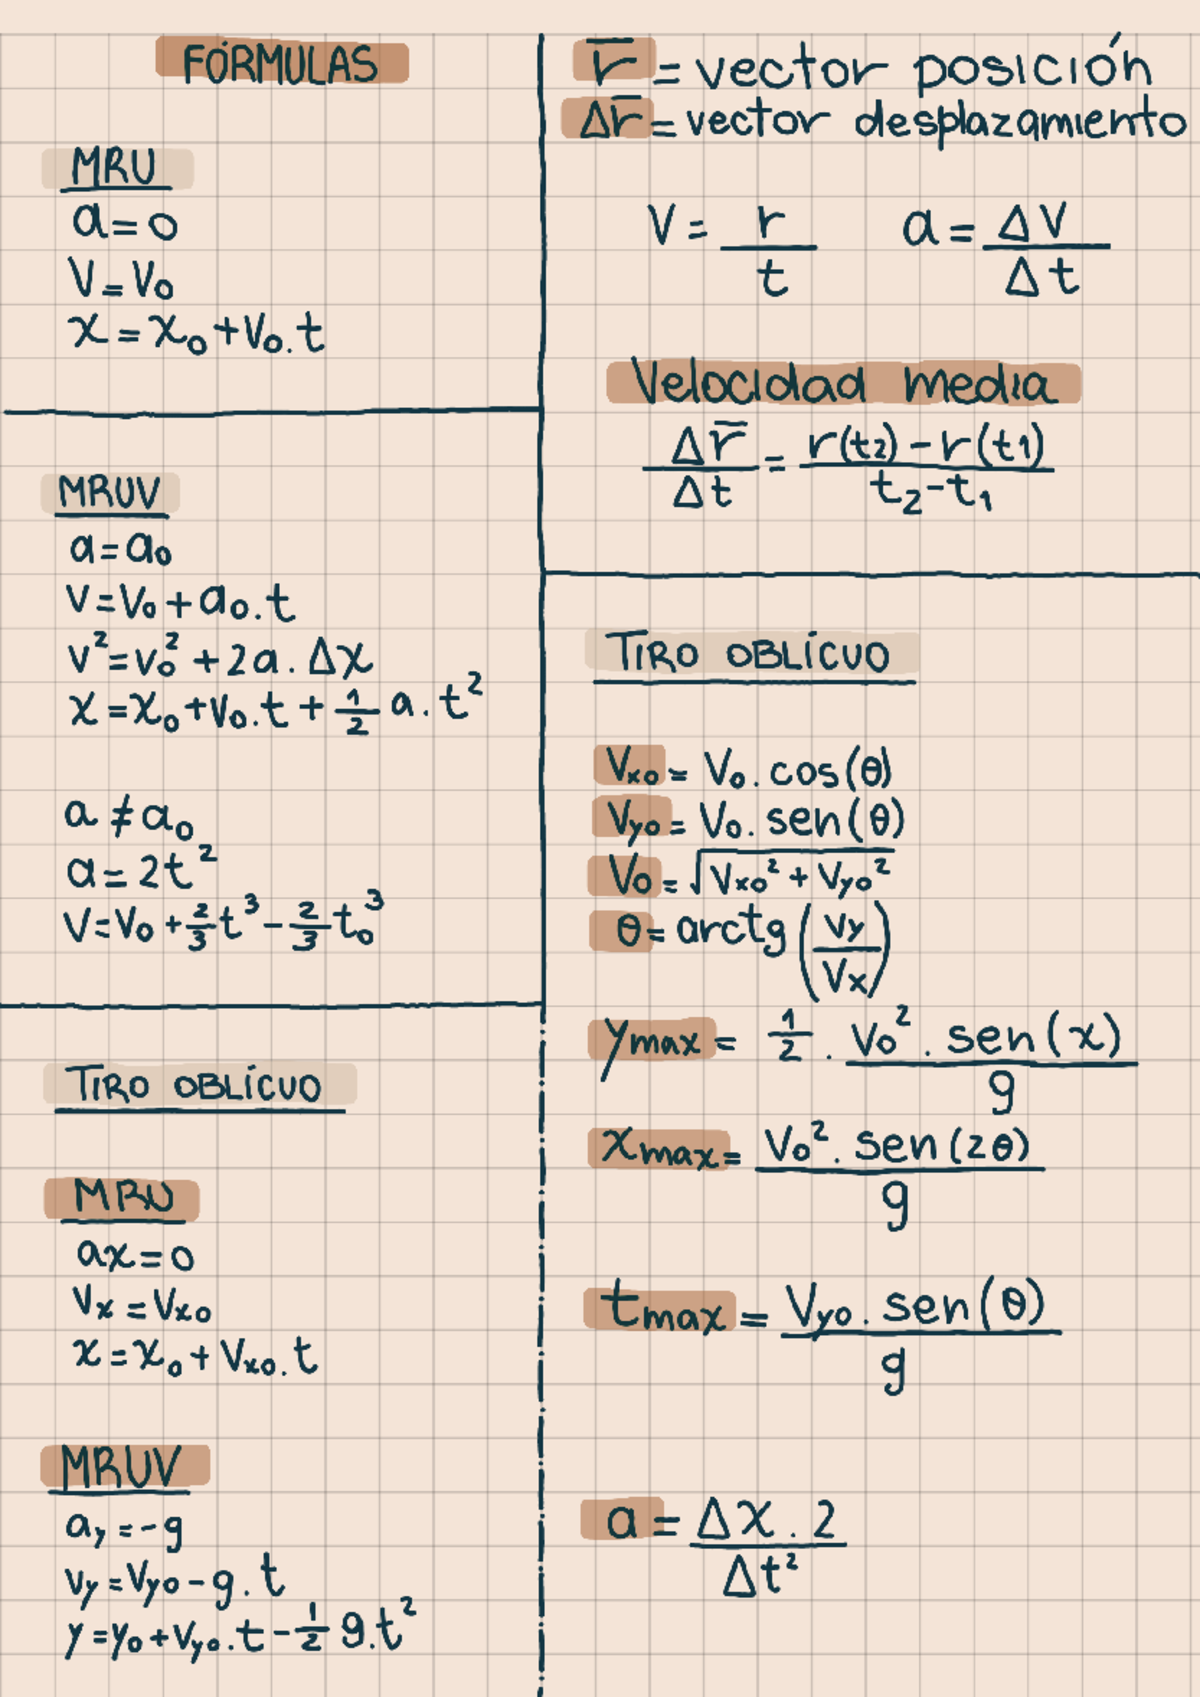 FÓRMULAS
MRU
a = 0
V = V₀
x = x₀ + V₀.t
MRUV
a = a₀
V = V₀ + a₀.t
v² = v₀² + 2a . Δx
x = x₀ + V₀.t + 1/2 a . t²
a ≠ a₀
a = 2t²
V = V₀ + 2/3 t³ - 2/3 t₀³
TIRO OBLÍCUO
MRU
ax = 0
Vx = Vx₀
x = x₀ + Vx₀.t
MRUV
ay = -g
Vy = Vy₀ - g.t
y = y₀ + Vy₀.t - 1/2 g.t²
r̅ = vector posición
Δr̅ = vector desplazamiento
V = r/t a = ΔV/Δt
Velocidad media
Δr̅/Δt = (r(t₂) - r(t₁))/(t₂ - t₁)
TIRO OBLÍCUO
Vx₀ = V₀ . cos(θ)
Vy₀ = V₀ . sen(θ)
V₀ = √(Vx₀² + Vy₀²)
θ = arctg (Vy/Vx)
ymax = 1/2 . (V₀² . sen(x))/g
xmax = (V₀² . sen(2θ))/g
tmax = (Vy₀ . sen(θ))/g
a = (Δx . 2)/Δt²